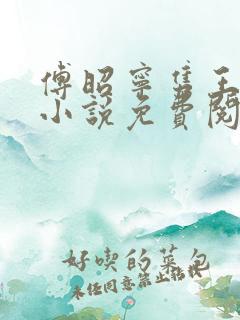 傅昭寧隽王
小说免費阅
好喫的菜包
未经同意禁止转载